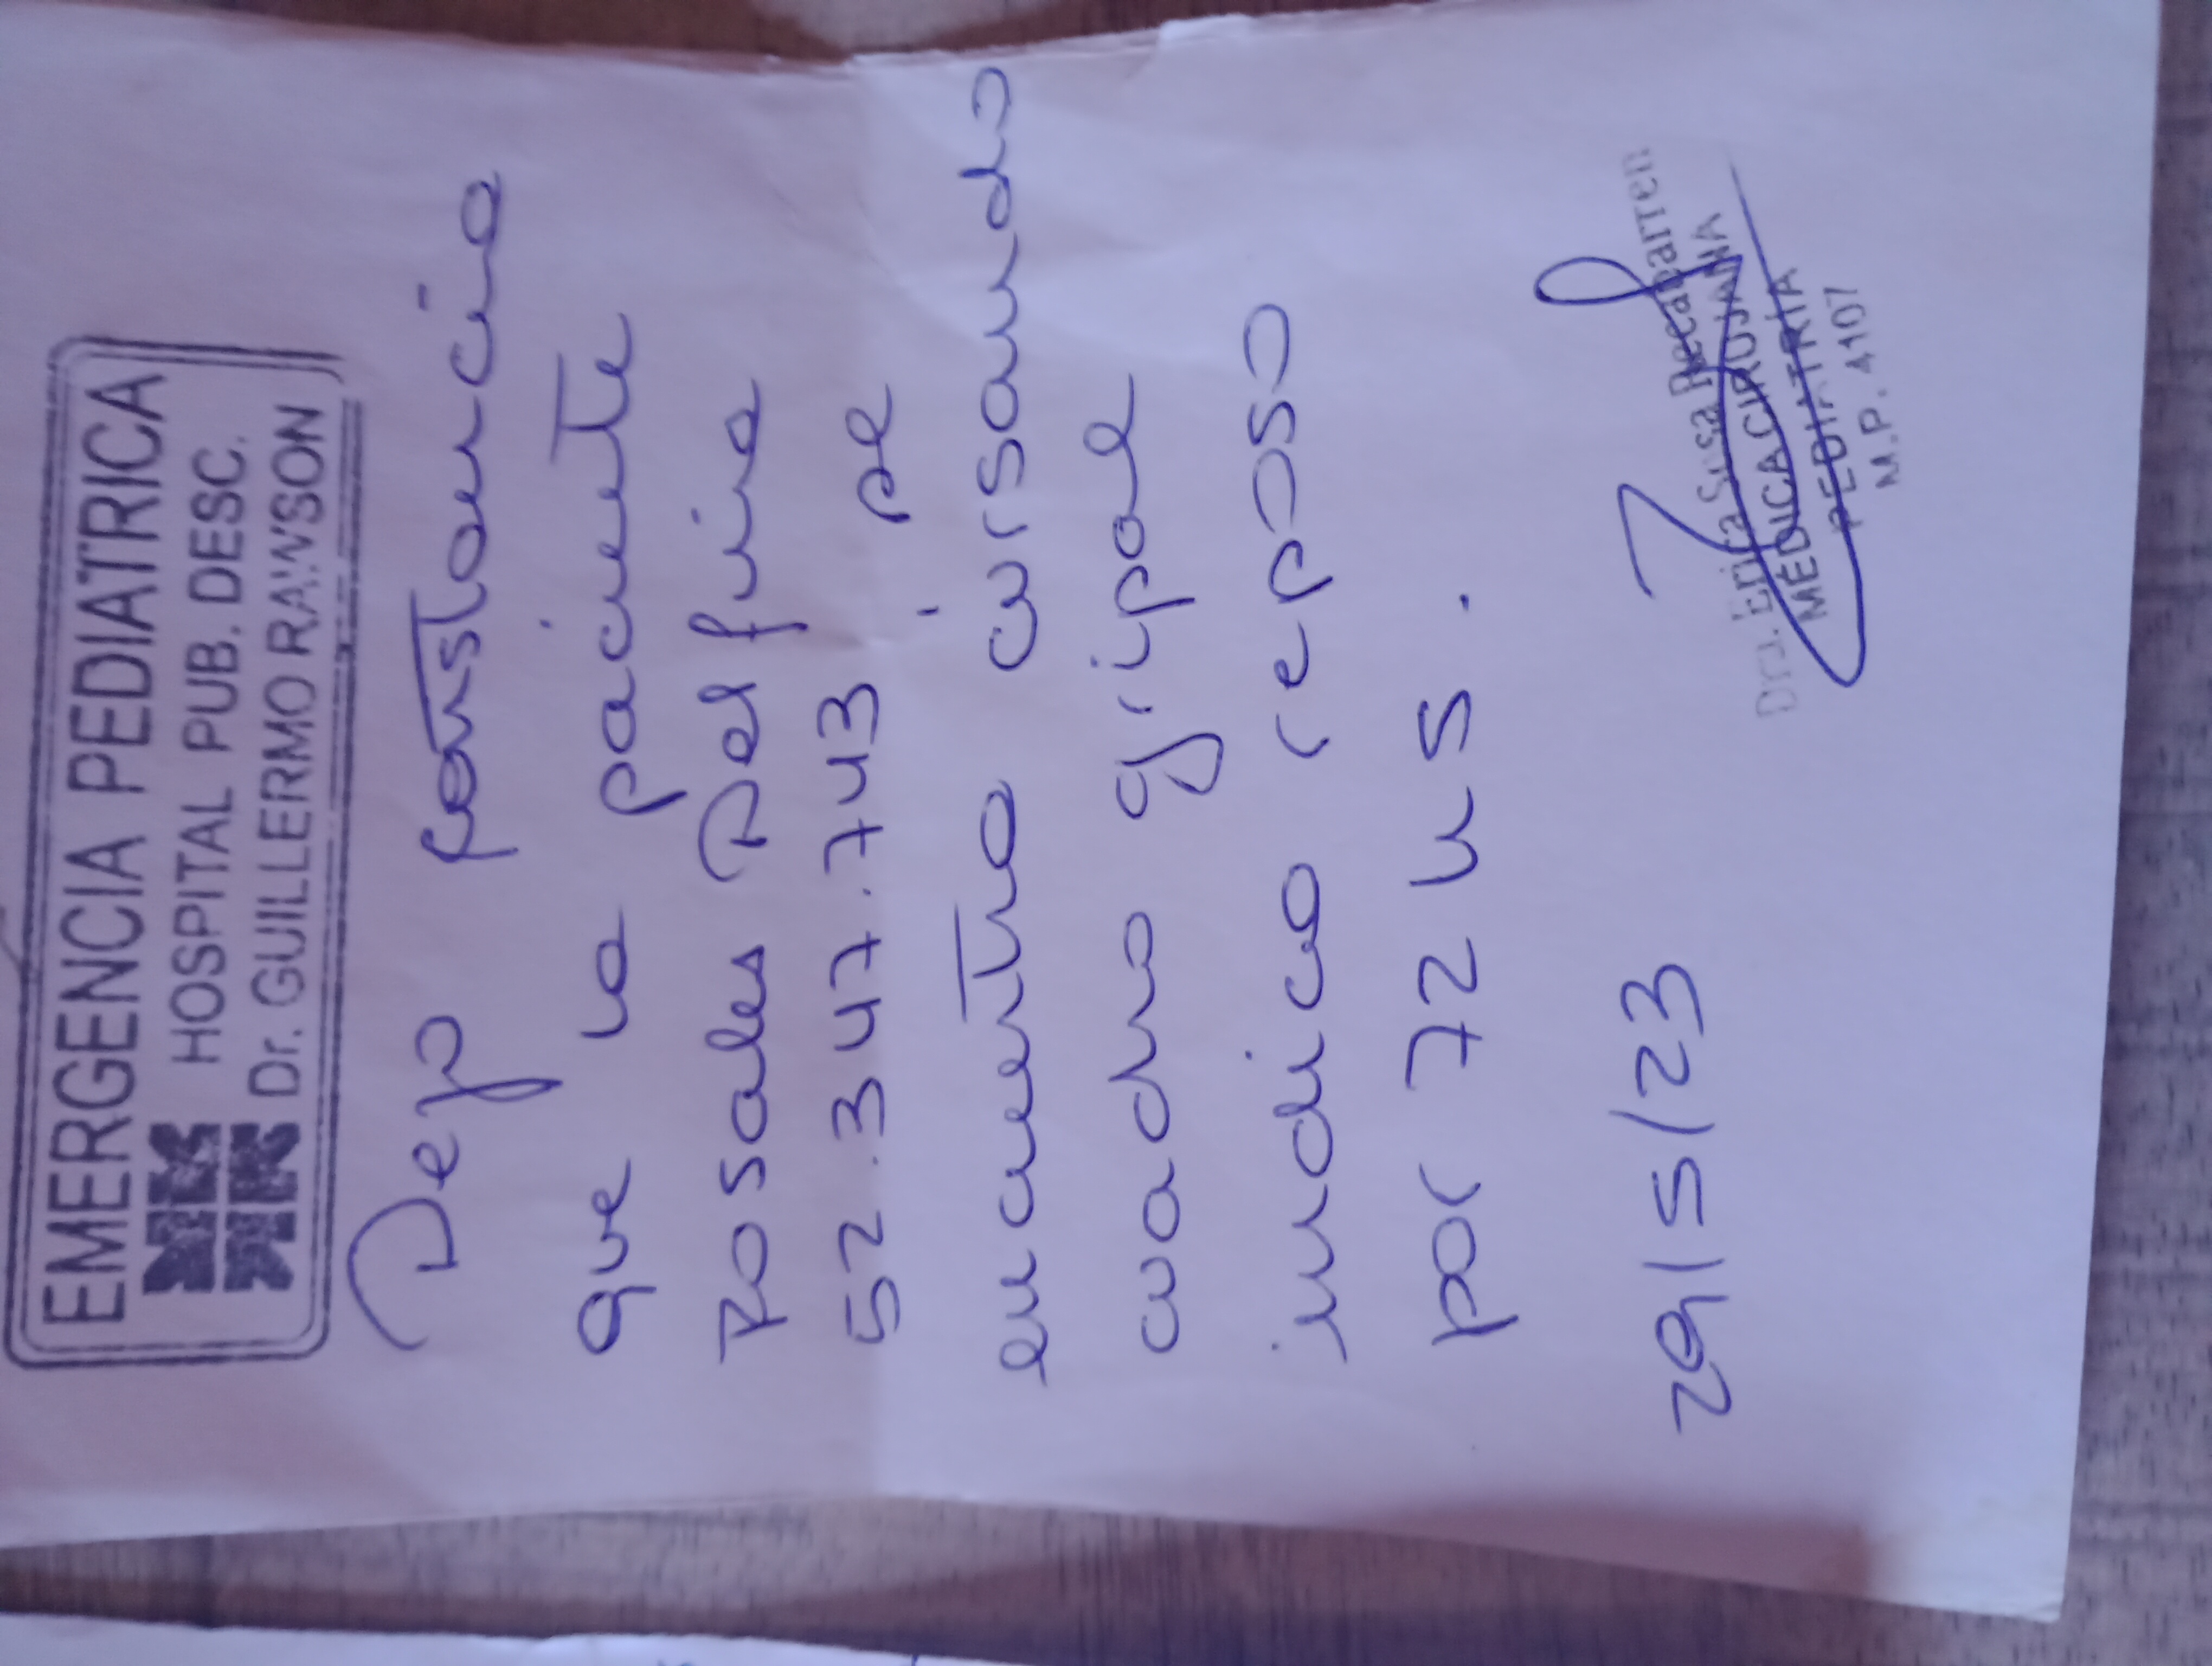 EMERGENCIA PEDIATRICA
HOSPITAL PUB. DESC.
Dr. GUILLERMO RAWSON
Dejo constancia
que la paciente
Rosales Delfina
52.347.743 se
encuentra cursando
cuadro gripal
indico reposo
por 72 hs.
29/5/23
Dra. Erica Sosa Recabarren
MÉDICA CIRUJANA
PEDIATRÍA
M.P. 4107